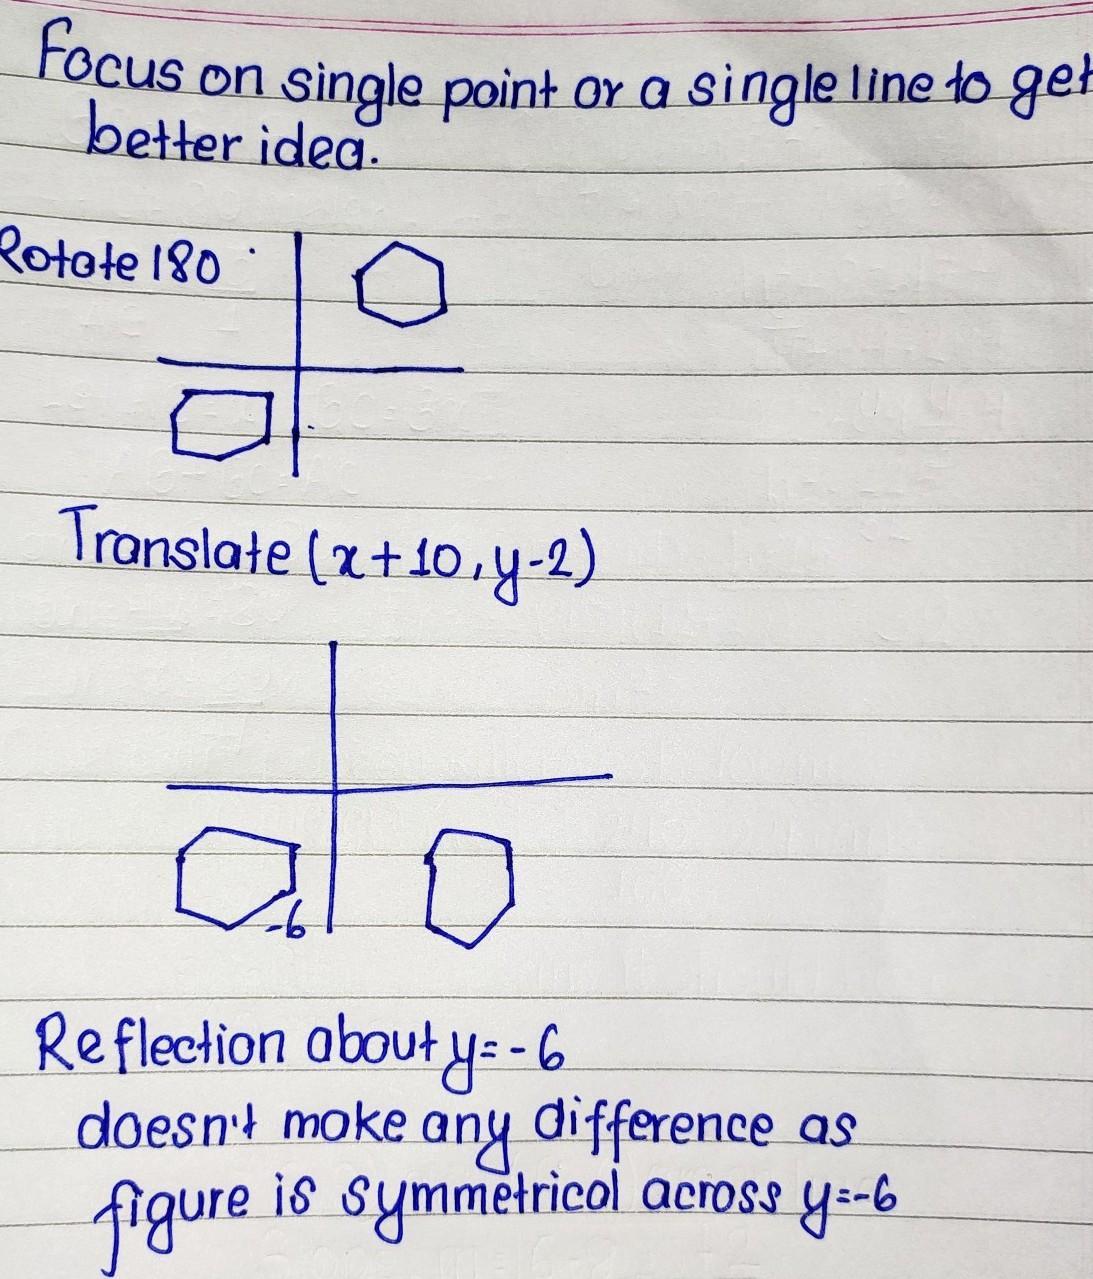 Focus on single point or a single line to get
better idea.
Rotate 180
Translate (x+10, y-2)
-6
Reflection about y=-6
doesn't make any difference as
figure is symmetrical across y=-6